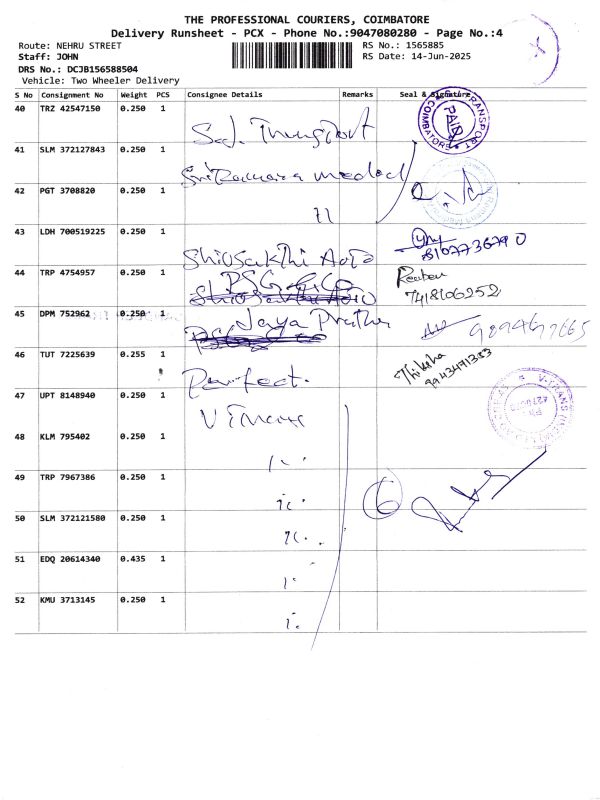 THE PROFESSIONAL COURIERS, COIMBATORE
Delivery Runsheet - PCX - Phone No.:9047080280 - Page No.:4
Route: NEHRU STREET
RS No.: 1565885
Staff: JOHN
RS Date: 14-Jun-2025
DRS No.: DCJB156588504
Vehicle: Two Wheeler Delivery
S No Consignment No Weight PCS Consignee Details Remarks Seal & Signature
40 TRZ 42547150 0.250 1
PAID
COIMBATORE
41 SLM 372127843 0.250 1 Sri Ramana medical
42 PGT 3708820 0.250 1 11
43 LDH 700519225 0.250 1 Shivsakthi Auto
44 TRP 4754957 0.250 1 PSG & Co
7418106252
45 DPM 752962 0.250 1 Jaya Pratha
46 TUT 7225639 0.255 1 Perfect.
Thiksha
9943491383
47 UPT 8148940 0.250 1
48 KLM 795402 0.250 1
49 TRP 7967386 0.250 1
6
50 SLM 372121580 0.250 1
51 EDQ 20614340 0.435 1
52 KMU 3713145 0.250 1